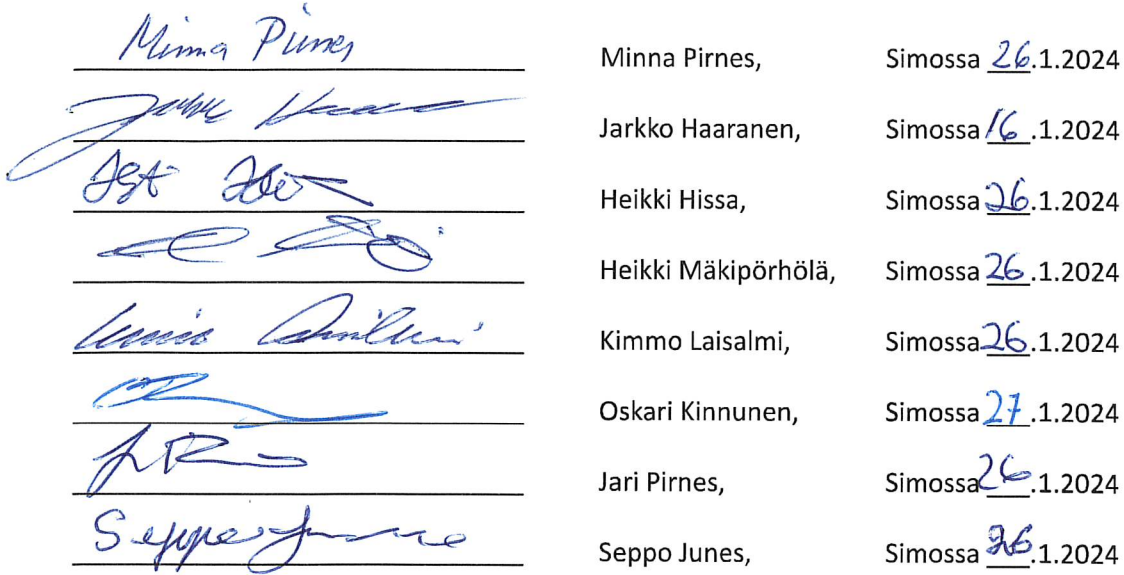 Minna Pirnes Minna Pirnes, Simossa 26.1.2024
Jarkko Haaranen, Simossa 16.1.2024
Heikki Hissa, Simossa 26.1.2024
Heikki Mäkipörhölä, Simossa 26.1.2024
Kimmo Laisalmi, Simossa 26.1.2024
Oskari Kinnunen, Simossa 27.1.2024
Jari Pirnes, Simossa 26.1.2024
Seppo Junes Seppo Junes, Simossa 26.1.2024